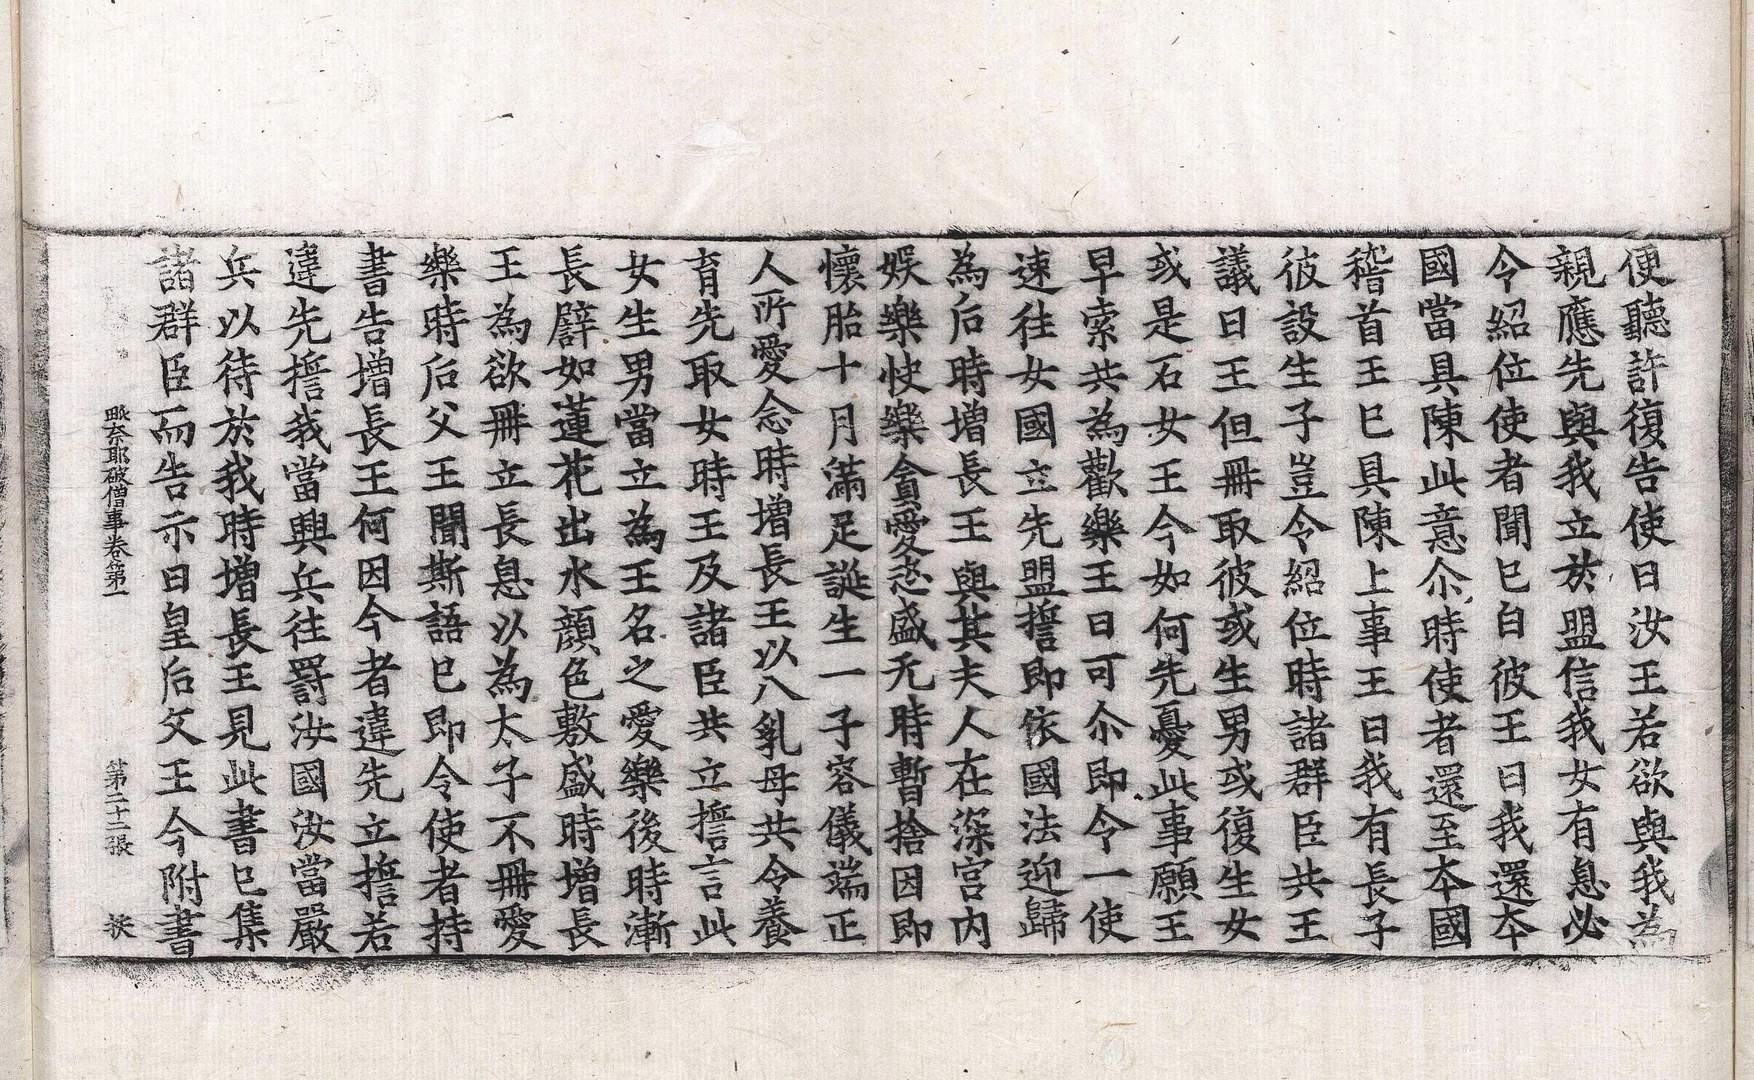 便聽許復告使曰汝王若欲與我為
親應先與我立於盟信我女有息必
令紹位使者聞已白彼王曰我還本
國當具陳此意尒時使者還至本國
稽首王已具陳上事王曰我有長子
彼設生子豈令紹位時諸群臣共王
議曰王但冊取彼或生男或復生女
或是石女王今如何先憂此事願王
早索共為歡樂王曰可尒即令一使
速往女國立先盟誓即依國法迎歸
為后時增長王與其夫人在深宮内
娛樂快樂貪愛恣盛无時暫捨因即
懷胎十月滿足誕生一子容儀端正
人所愛念時增長王以八乳母共令養
育先取女時王及諸臣共立誓言此
女生男當立為王名之愛樂後時漸
長譬如蓮花出水顏色敷盛時增長
王為欲冊立長息以為太子不冊愛
樂時后父王聞斯語已即令使者持
書告增長王何因今者違先立誓若
違先誓我當興兵往罸汝國汝當嚴
兵以待於我時增長王見此書已集
諸群臣而告示曰皇后父王今附書
毗奈耶破僧事卷第一 第二十二張